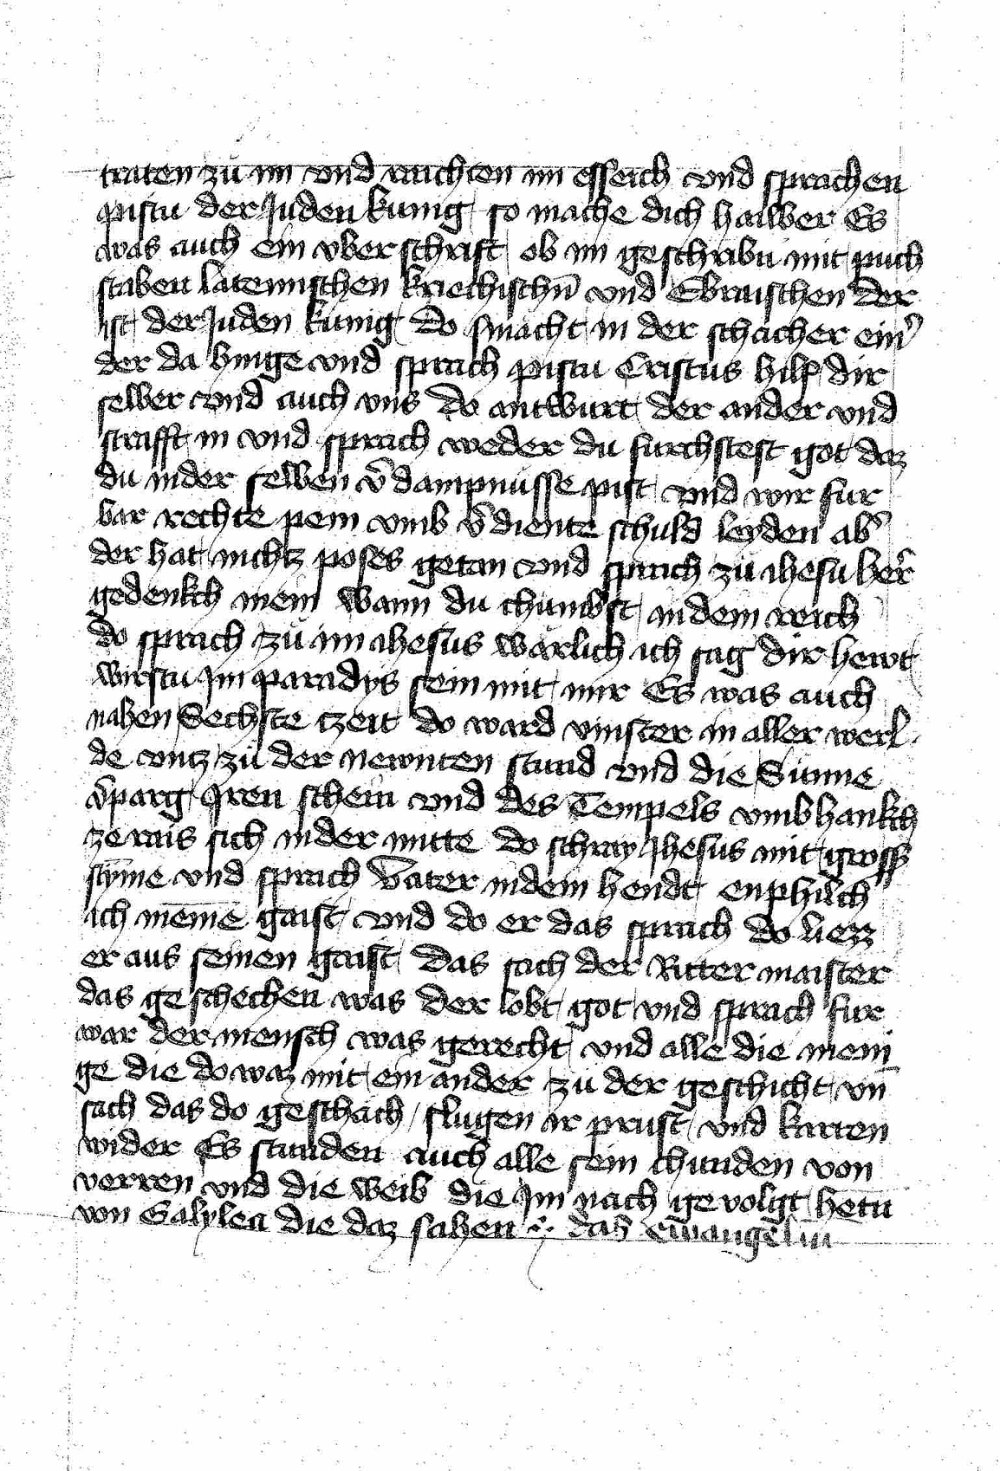 traten zu im vnd raichten im esseich vnd sprachen
pistu der Juden kunig so mache dich hailber Es
was auch ein vberschrift ob im geschribn mit puch
staben latemischen kriechischn̄ vnd Ebraischen der
ist der Juden kunig Do smacht in der schacher ein̾
der da hinge vnd sprach pistu Cristus hilf dir
selber vnd auch vns Do antwurt der ander vnd
strafft in vnd sprach weder du furchstest got daz
du inder selben v̄dampnüsse pist vnd wir fur
bar rechte pein vmb v̄diente schuld leyden ab̾
der hat nichtz poses getan vnd sprach zu ihesu her̄
gedenkch mein wann du chumbst in dein reich
do sprach zu im ihesus wärlich ich sag dir hewt
wirstu Im paradys sein mit mir Es was auch
nahen Sechste tzeit do ward vinster in aller werl
de vntz zu der newnten stund vnd die Sunne
v̄parg Iren schein vnd des Tempels vmbhankch
zerais sich inder mitte do schray Jhesus mit gross̾
stym̄e vnd sprach Vater in dein hendt enphilch
ich meine gaist vnd do er das sprach do liezz
er aus seinen gaist Das sach der Ritter maister
das geschechen was der lobt got vnd sprach fur
war der mensch was gerecht vnd alle die meni
ge die do waz mit ein ander zu der geschicht vn̄
sach das do geschach slugen ir prust vnd karten
wider Es stunden auch alle sein chunden von
verren vnd die weib die Im nach gevolgt hetn
von Galylea die daz sahen ·:· das Ewangeliu̅